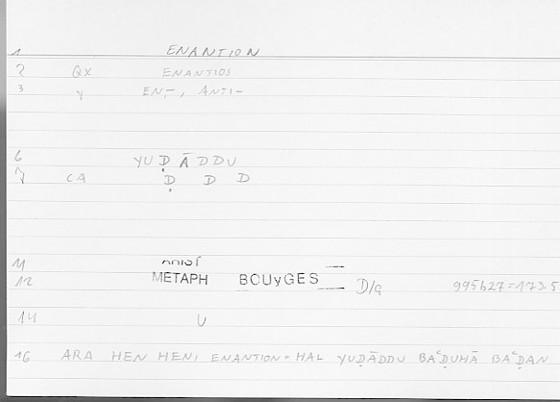 1 ENANTION
2 QX ENANTIOS
3 y EN-, ANTI-
6 YUḌĀDDU
7 CA Ḍ D D
11
12 METAPH BOUyGES D/a 995b27=173.5
14 U
16 ARA HEN HENI ENANTION = HAL YUḌĀDDU BAʿḌUHĀ BAʿḌAN